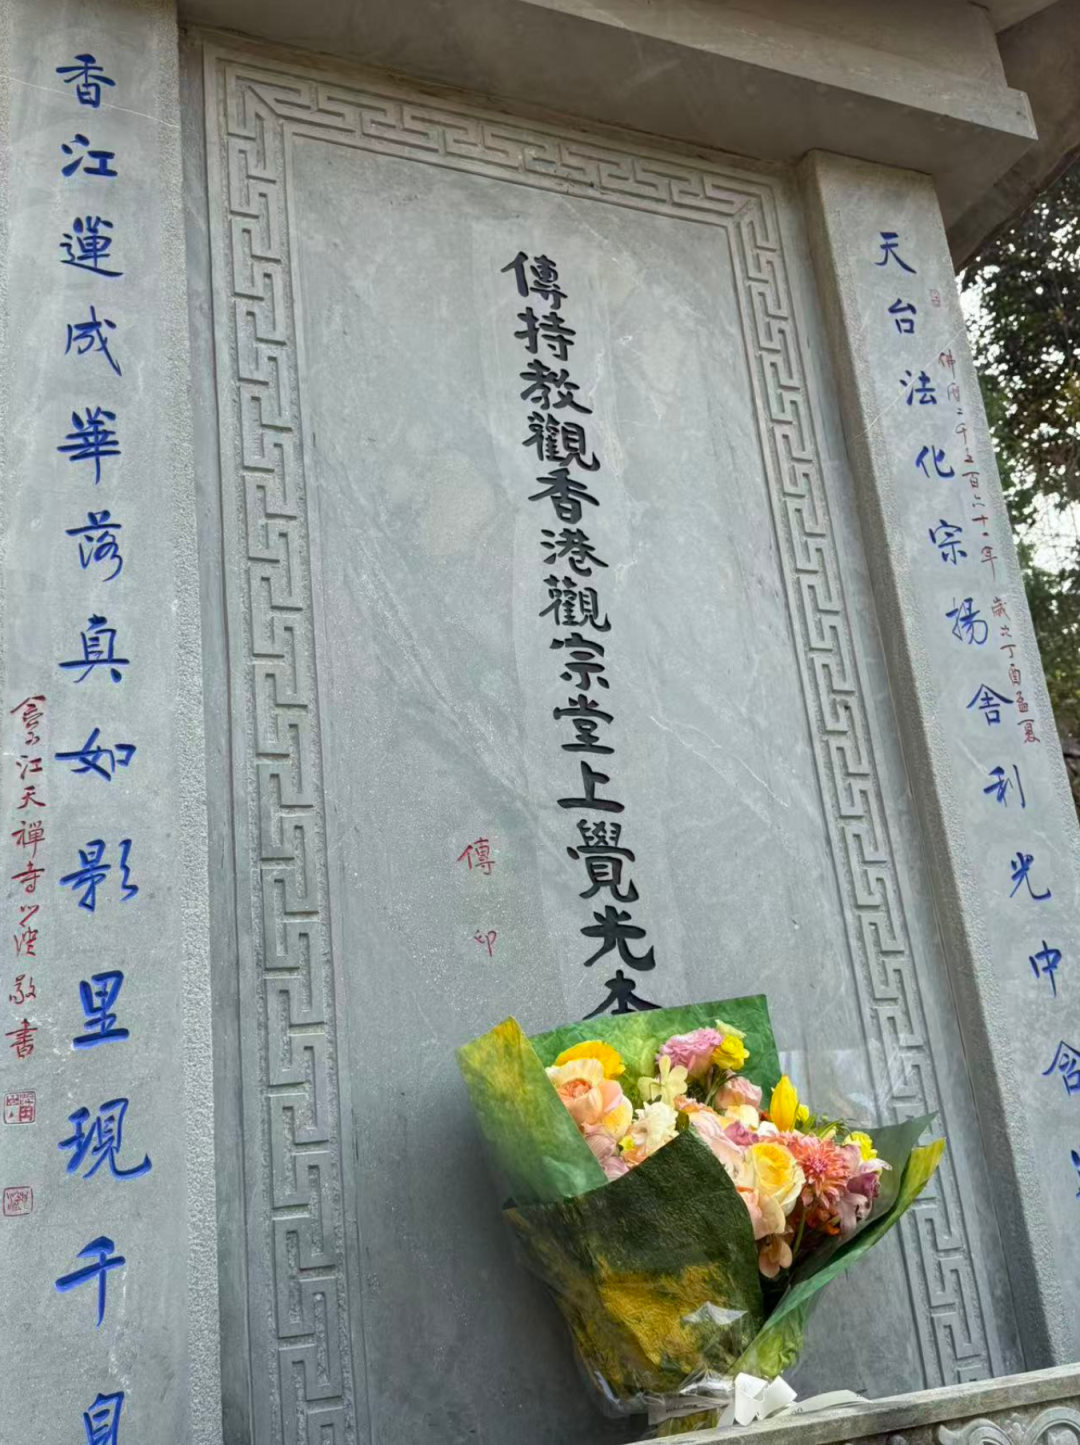 天台法化宗揚舍利光中含
佛曆二千五百六十一年
歲次丁酉孟夏
傳持教觀香港觀宗堂上覺光本
傳印
香江蓮成華落真如影里現千身
敬書